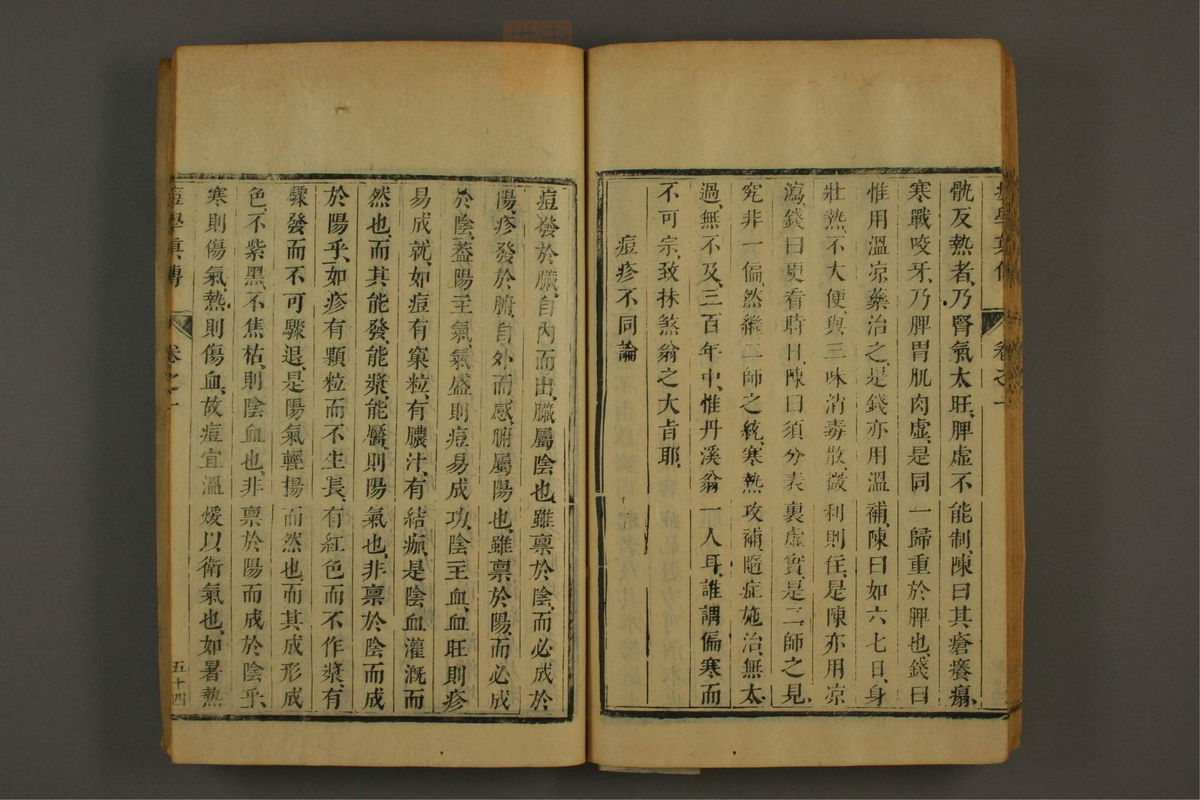 骯反熱者、乃腎氣太旺、脾虛不能制、陳曰其瘡癢塌、
寒戰咬牙、乃脾胃肌肉虛、是同一歸重於脾也、錢曰
惟用溫凉藥治之、是錢亦用溫補、陳曰如六七日、身
壯熱、不大便、與三味消毒散、微利則住、是陳亦用凉
瀉、錢曰更看時日、陳曰須分表裏虛實、是二師之見、
究非一偏、然繼二師之統、寒熱攻補、隨症施治、無太
過、無不及、三百年中、惟丹溪翁一人耳、誰謂偏寒而
不可宗、致抹煞翁之大旨耶、
痘疹不同論
痘發於臟、自內而出、臟屬陰也、雖禀於陰、而必成於
陽、疹發於腑、自外而感、腑屬陽也、雖禀於陽、而必成
於陰、葢陽主氣、氣盛則痘易成功、陰主血、血旺則疹
易成就、如痘有窠粒、有膿汁、有結痂、是陰血灌溉而
然也、而其能發、能漿、能靨、則陽氣也、非禀於陰而成
於陽乎、如疹有顆粒、而不生長、有紅色、而不作漿、有
驟發而不可驟退、是陽氣輕揚而然也、而其成形成
色、不紫黑、不焦枯、則陰血也、非禀於陽而成於陰乎、
寒則傷氣、熱則傷血、故痘宜溫煖以衛氣也、如暑熱
痘學眞傳
卷之一
五十四